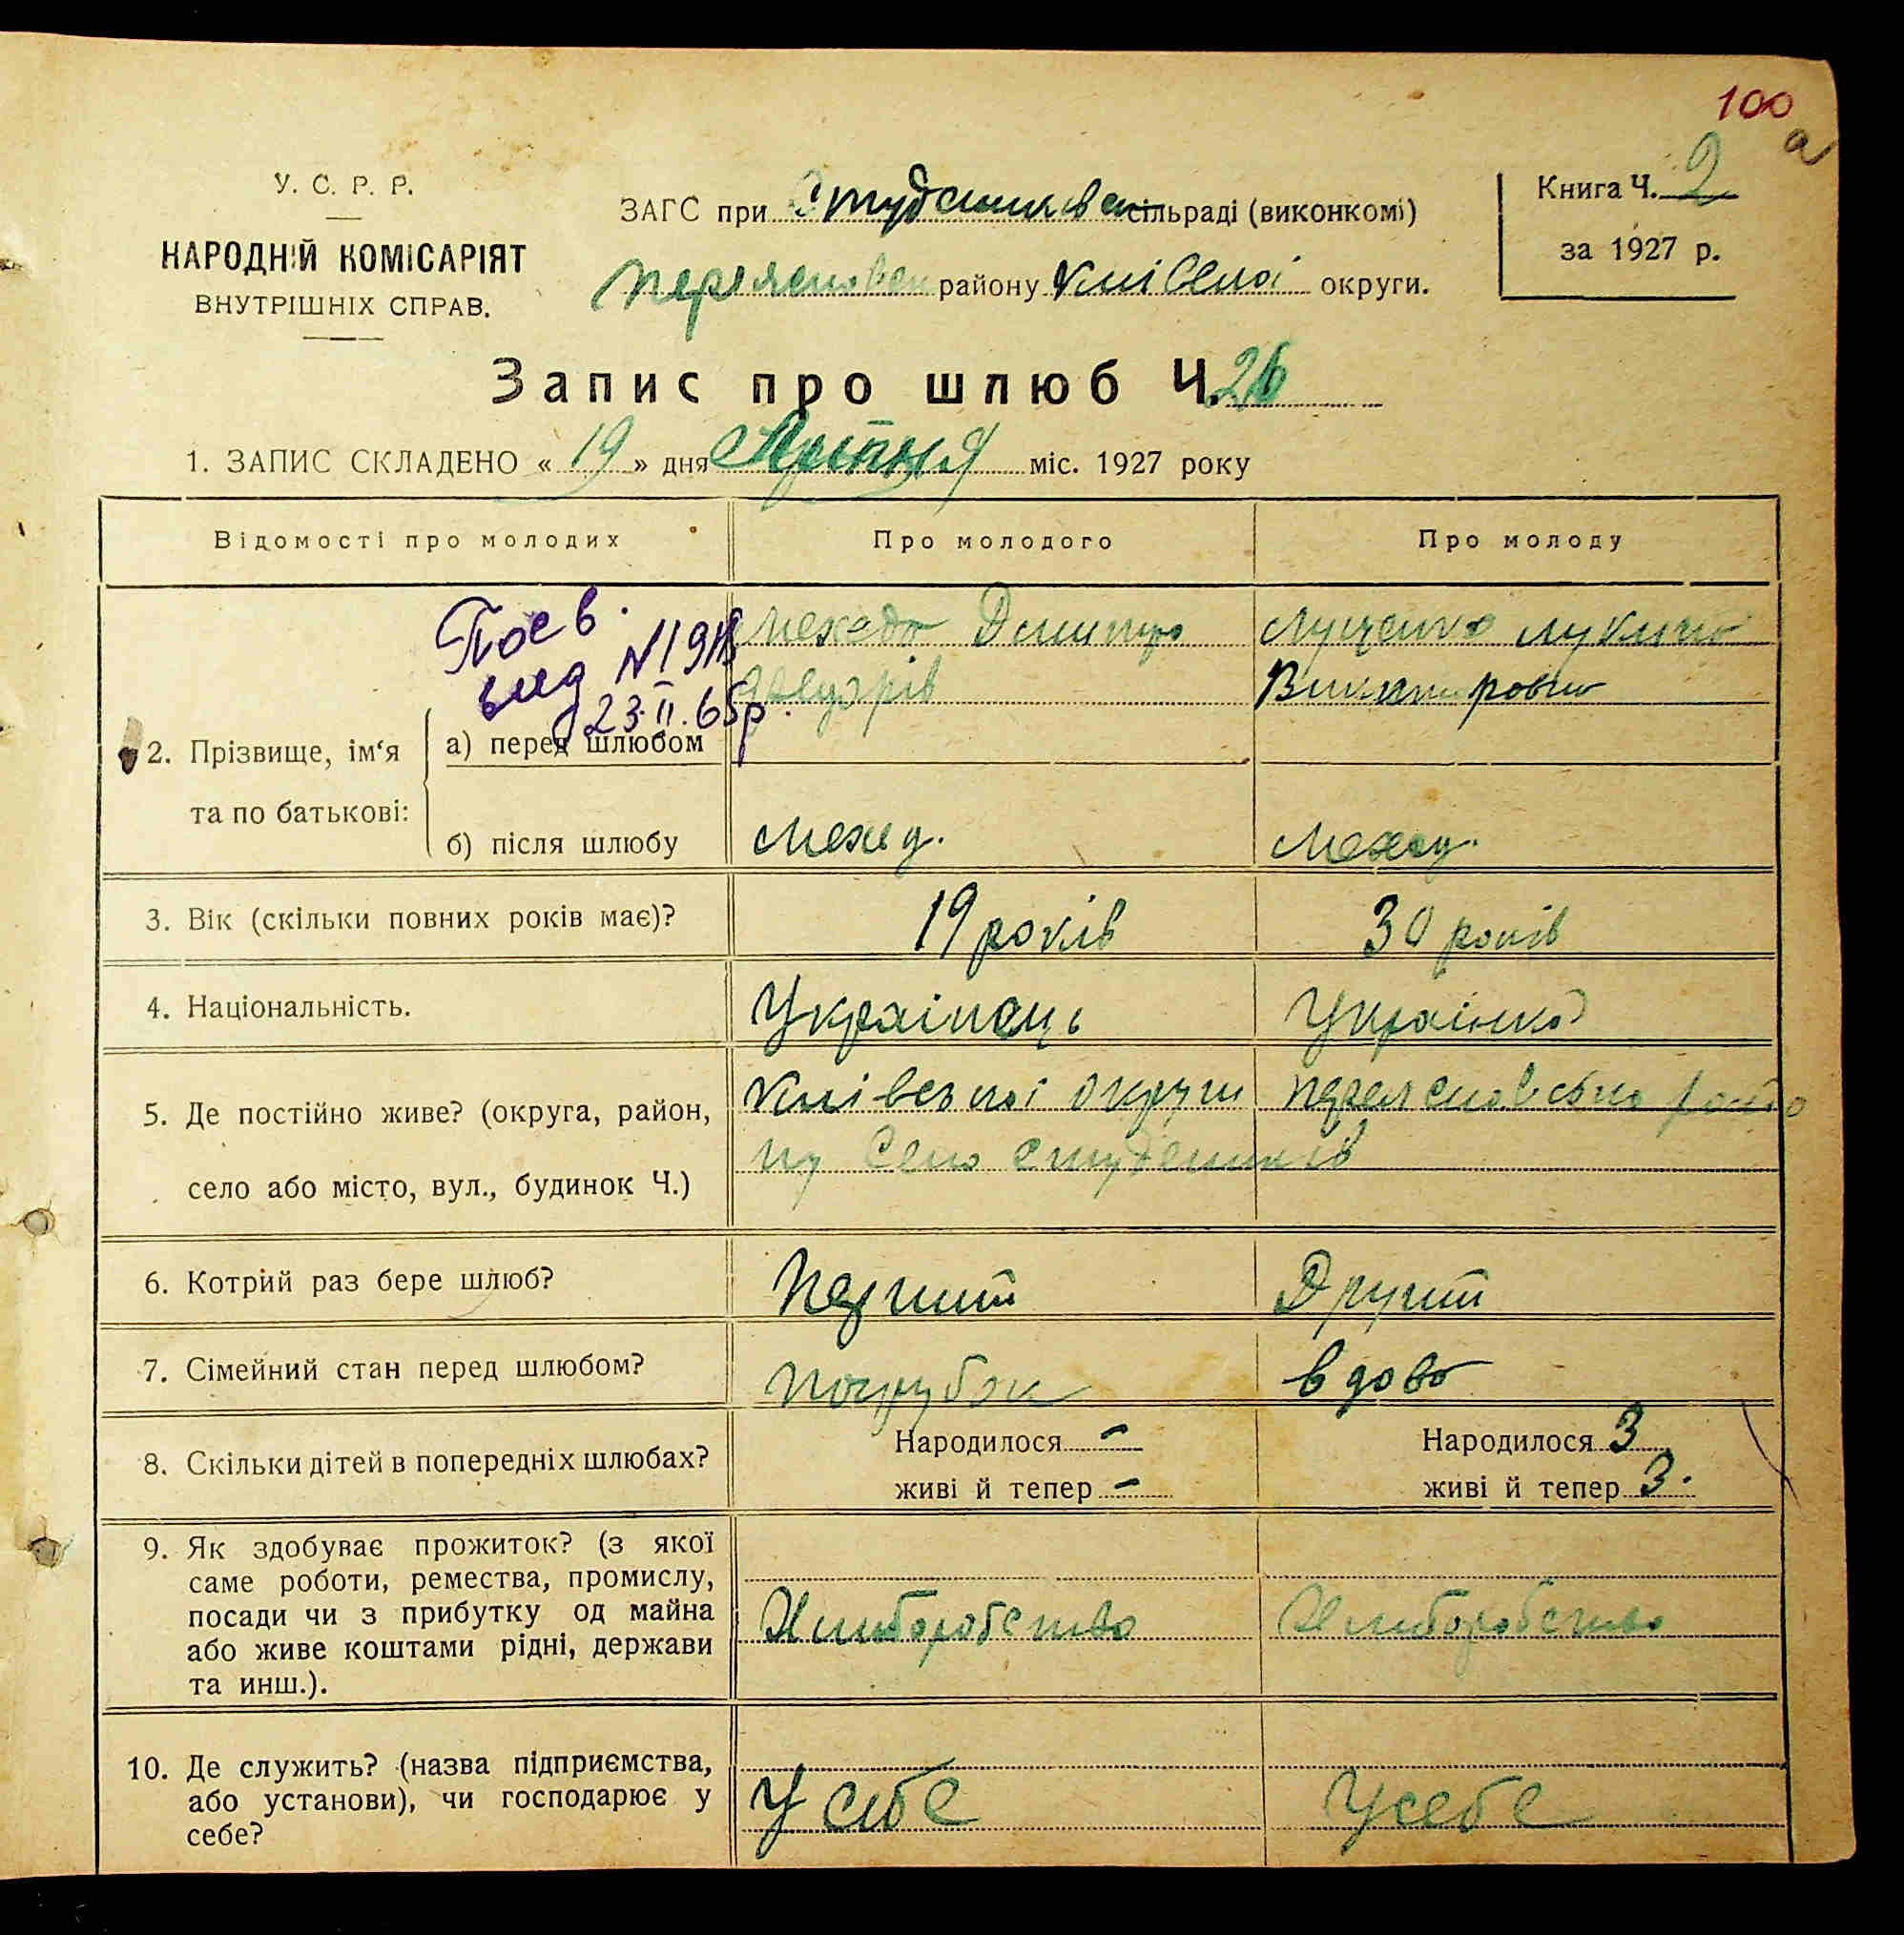 100
а
У. С. Р. Р.
НАРОДНІЙ КОМІСАРІЯТ
ВНУТРІШНІХ СПРАВ.
ЗАГС при Студениковс сільраді (виконкомі)
Переяславськ району Київської округи.
Книга Ч. 2
за 1927 р.
Запис про шлюб Ч. 26
1. ЗАПИС СКЛАДЕНО « 19 » дня міс. 1927 року
Відомості про молодих Про молодого Про молоду
Посв.
вид №
23.II.65р.
Дмитро
Луценко
2. Прізвище, ім‘я
та по батькові:
а) перед шлюбом
б) після шлюбу
3. Вік (скільки повних років має)? 19 років 30 років
4. Національність. Українець Українка
5. Де постійно живе? (округа, район,
село або місто, вул., будинок Ч.)
Київської округи Переяславського райо
ну Село Студеників
6. Котрий раз бере шлюб? Перший Другий
7. Сімейний стан перед шлюбом? парубок вдова
8. Скільки дітей в попередніх шлюбах? Народилося - Народилося 3
живі й тепер - живі й тепер 3.
9. Як здобуває прожиток? (з якої
саме роботи, ремества, промислу,
посади чи з прибутку од майна
або живе коштами рідні, держави
та инш.).
Хлиборобство Хлиборобство
10. Де служить? (назва підприємства,
або установи), чи господарює у
себе?
У себе У себе